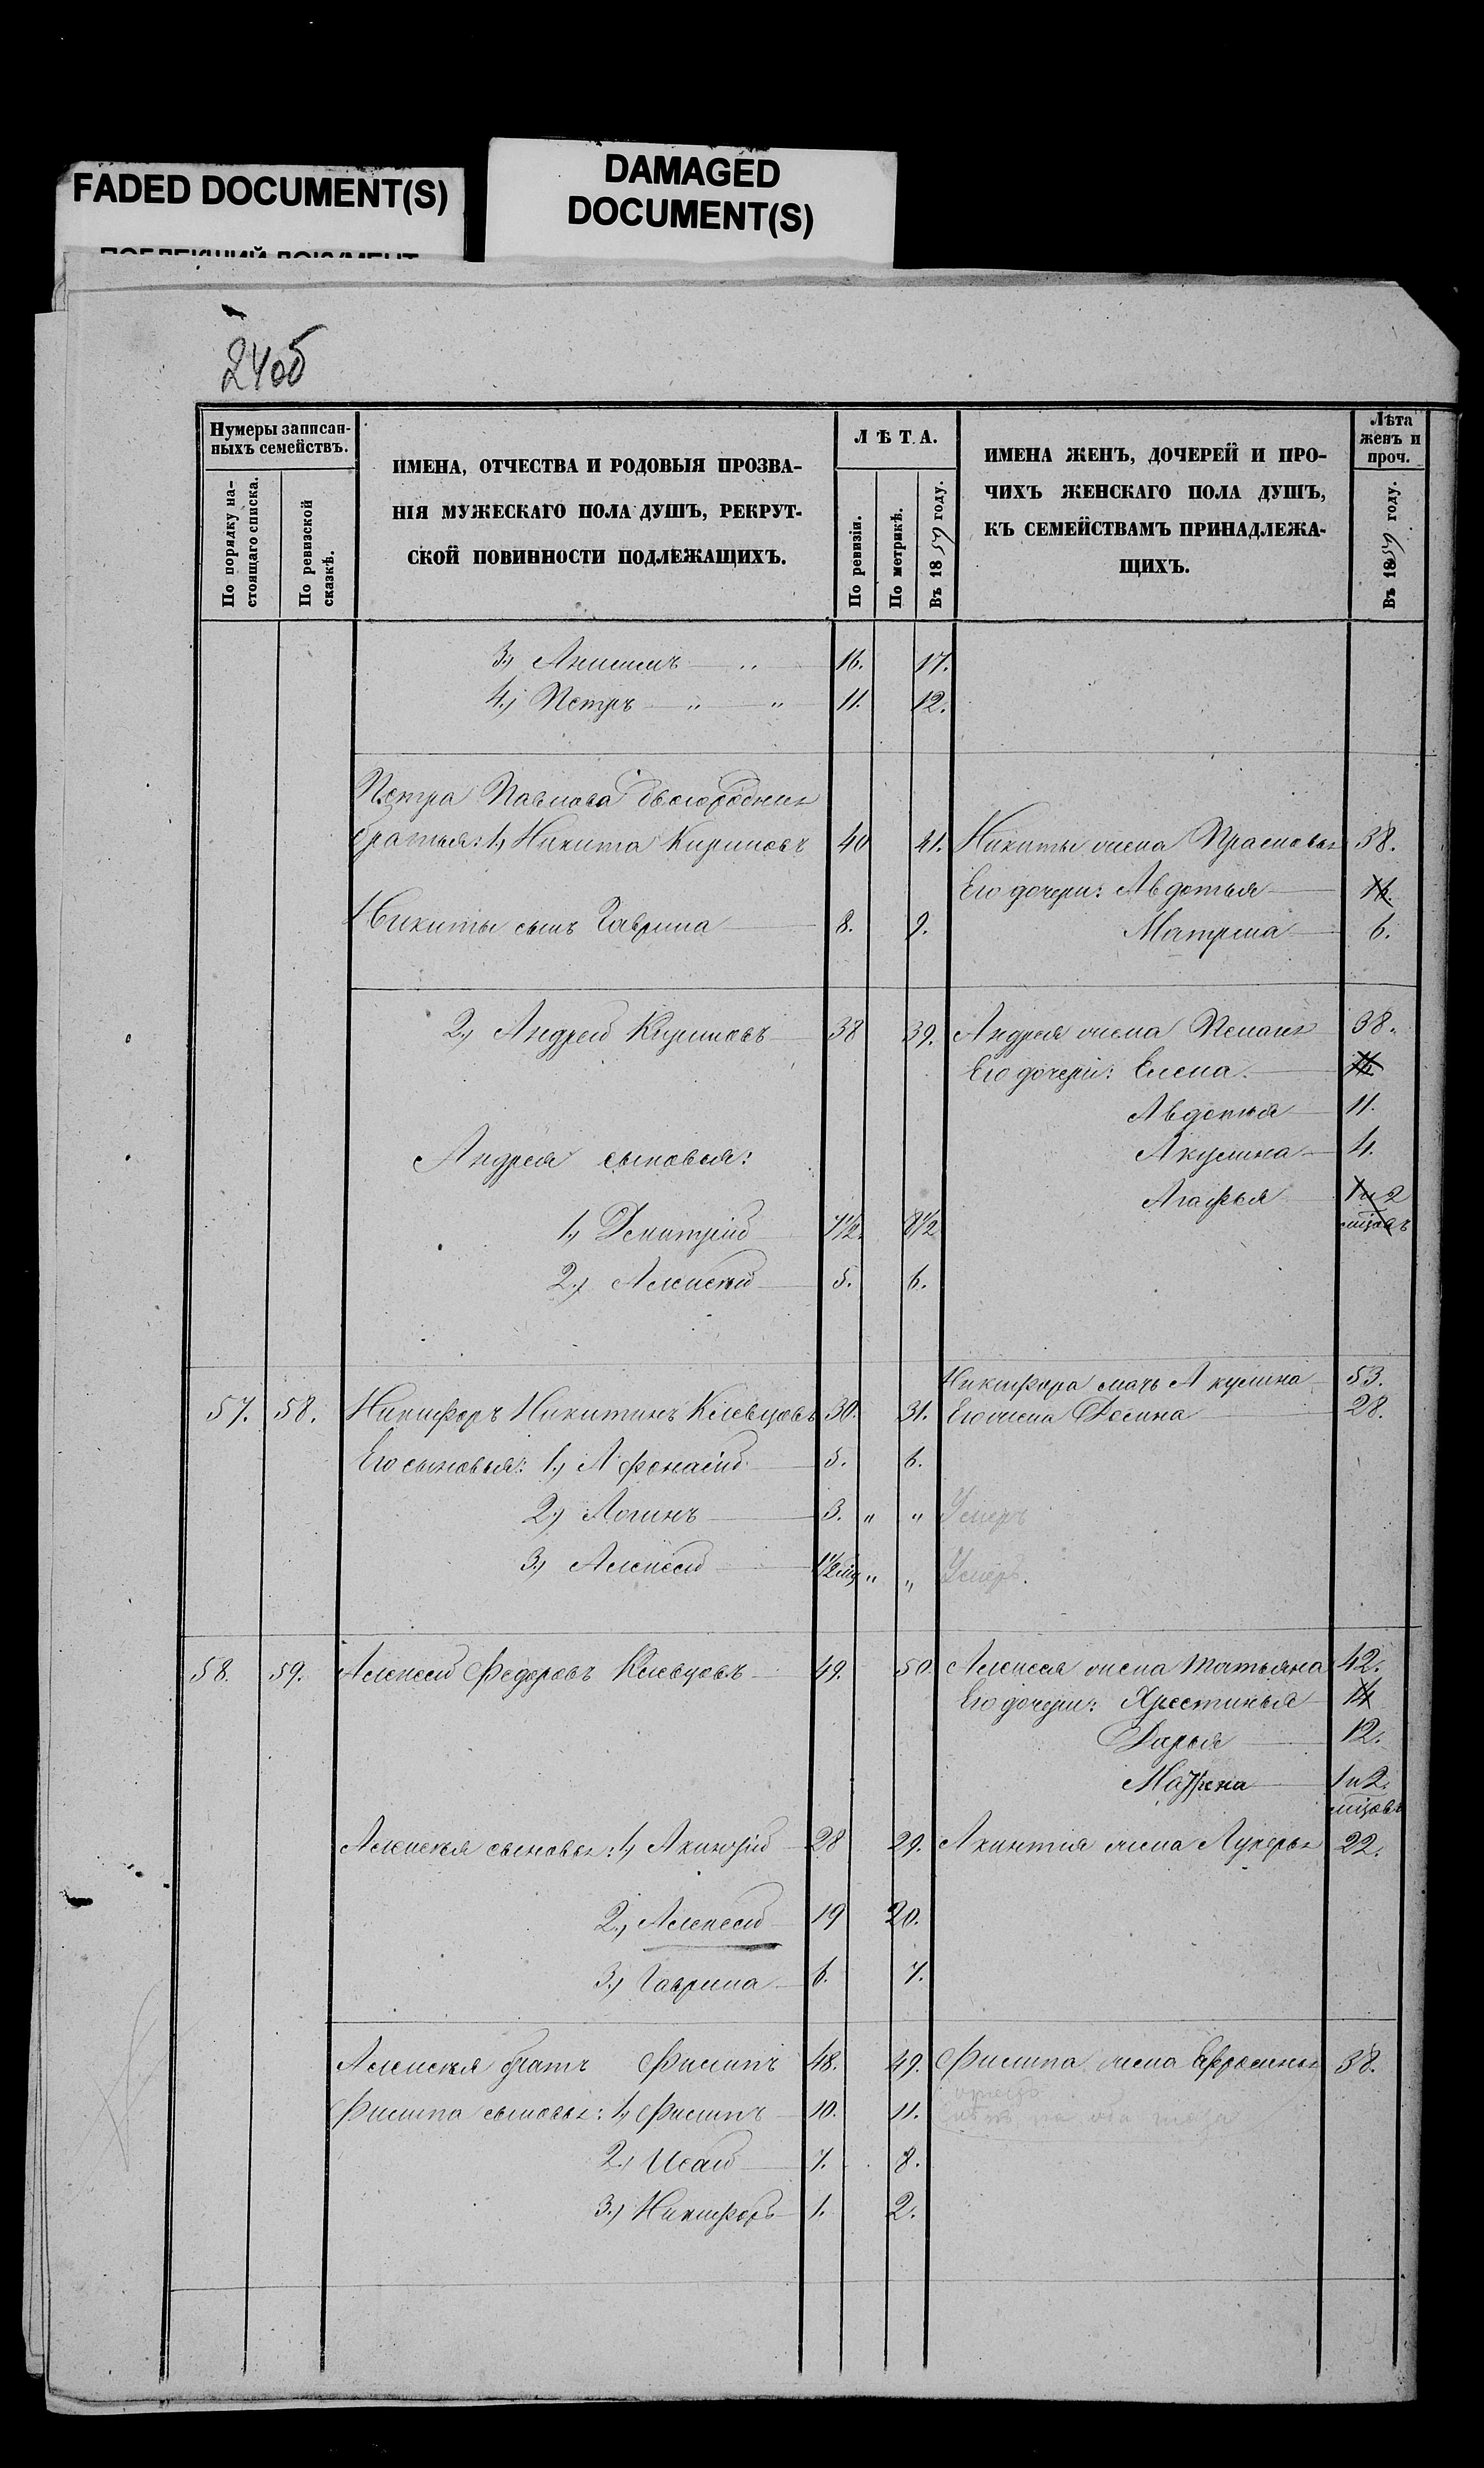 FADED DOCUMENT(S)
DAMAGED
DOCUMENT(S)
24об
Нумеры записан-
ныхъ семействъ.
По порядку на-
стоящаго списка.
По ревизской
сказкѣ.
ИМЕНА, ОТЧЕСТВА И РОДОВЫЯ ПРОЗВА-
НІЯ МУЖЕСКАГО ПОЛА ДУШЪ, РЕКРУТ-
СКОЙ ПОВИННОСТИ ПОДЛЕЖАЩИХЪ.
ЛѢТА.
По ревизіи.
По метрикѣ.
Въ 1859 году.
ИМЕНА ЖЕНЪ, ДОЧЕРЕЙ И ПРО-
ЧИХЪ ЖЕНСКАГО ПОЛА ДУШЪ,
КЪ СЕМЕЙСТВАМЪ ПРИНАДЛЕЖА-
ЩИХЪ.
Лѣта
женъ и
проч.
Въ 1859 году.
3., Анисимъ 16. 17.
4., Петръ 11. 12.
Петра Павлова двоюродныя
братья: 1, Никита Кириловъ 40 41. Никиты жена Прасковья 38.
Его дочери: Авдотья 16.
Никиты сынъ Гаврила 8. 9. Матрена 6.
2., Андрей Кириловъ 38 39. Андрея жена Пелагея 38.
Его дочери: Елена
Авдотья 11.
Андрея сыновья: Акулина 4.
Агафья 1 и 2
мѣсцовъ
1., Дмитрій 7½. 8½
2., Алексѣй 5. 6.
Никифора мать Акулина 53.
57. 58. Никифоръ Никитинъ Клевцовъ 30. 31. Его жена Фокина 28.
Его сыновья: 1., Афонасій 5. 6.
2., Логинъ 3. " " Умеръ
3., Алексѣй 1½ мц " " Умеръ.
58. 59. Алексѣй Федоровъ Клевцовъ 49. 50. Алексея жена Татьяна 42.
Его дочери: Хрестинья 14
Дарья 12.
Матрена 1 и 2.
мѣсцовъ
Алексѣя сыновья: 1, Акинфій 28 29. Акинтія жена Лукерья 22.
2., Алексѣй 19 20.
3., Гаврила 6. 7.
Алексѣя братъ Филипъ 48. 49. Филипа жена Ефросинья 38.
Филипа сыновья: 1, Филипъ 10. 11.
2., Исай 7. 8.
3., Никифоръ 1. 2.